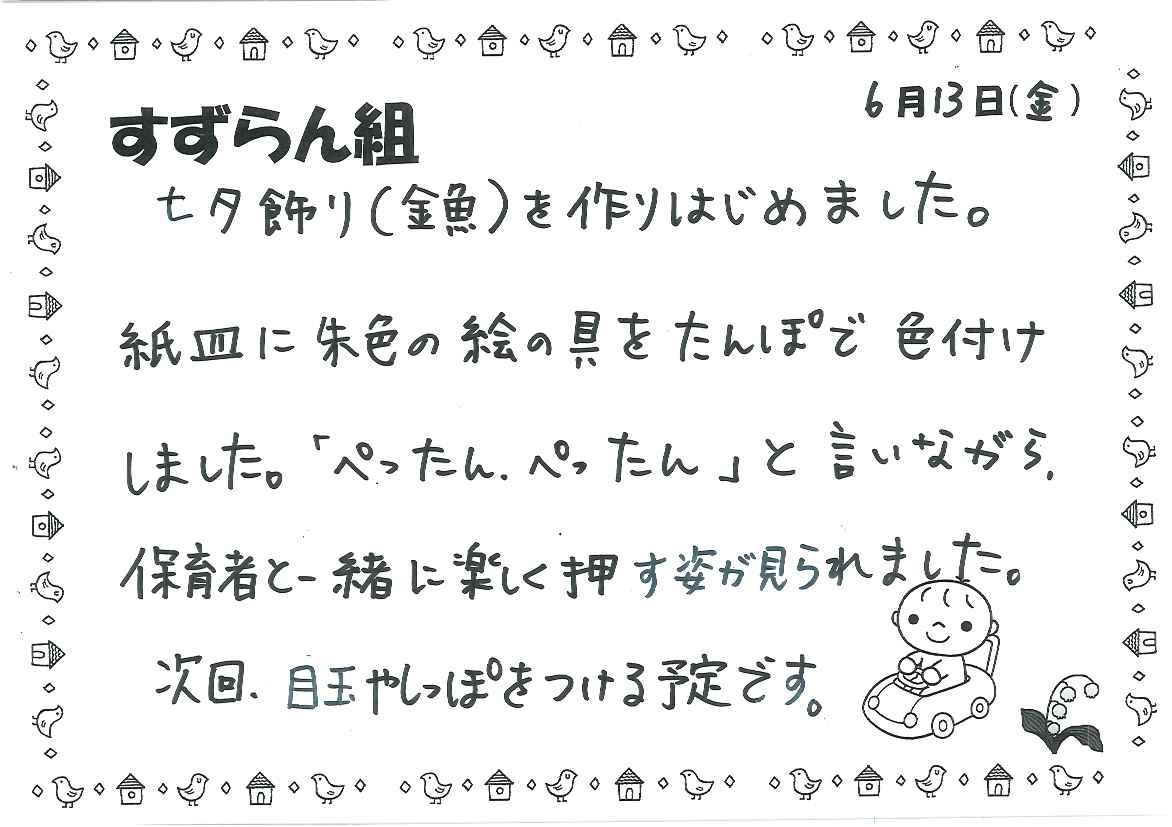 6月13日(金)
すずらん組
七夕飾り(金魚)を作りはじめました。
紙皿に朱色の絵の具をたんぽで色付け
しました。「ぺったん、ぺったん」と言いながら、
保育者と一緒に楽しく押す姿が見られました。
次回、目玉やしっぽをつける予定です。